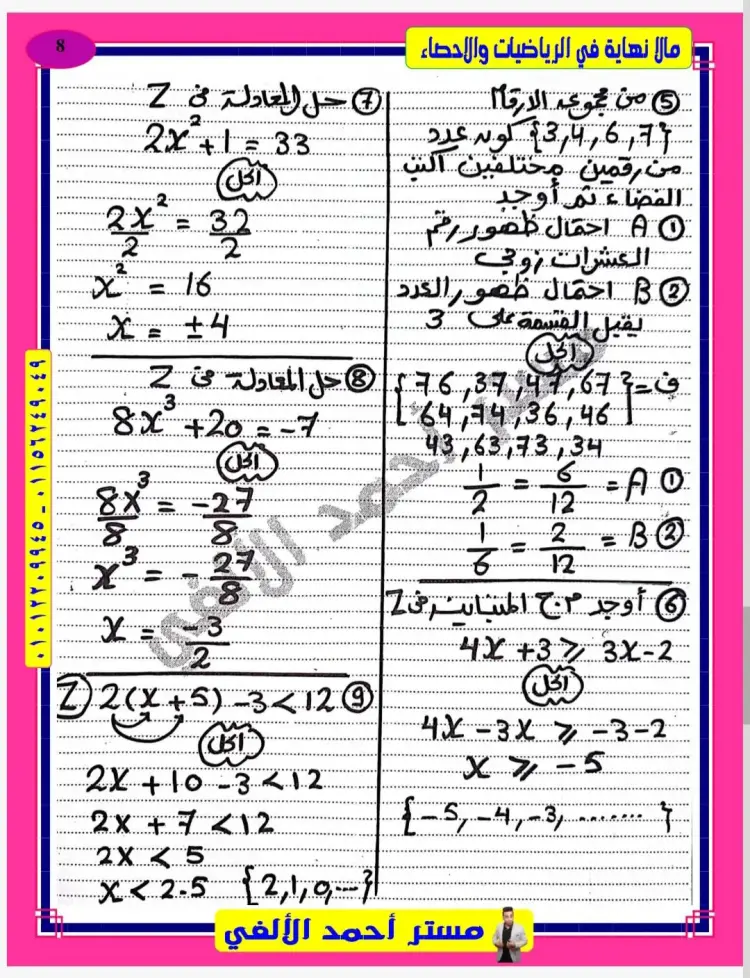 8
مالا نهاية في الرياضيات والاحصاء
⑤ من مجموعة الارقام
{3,4,6,7} كون عدد
من رقمين مختلفين أكتب
الفضاء ثم أوجد
① A احتمال ظهور رقم
العشرات زوجي
② B احتمال ظهور العدد
يقبل القسمة على 3
الحل
ف = {76,37,47,67
64,74,36,46
43,63,73,34
① A = 6/12 = 1/2
② B = 2/12 = 1/6
⑥ أوجد م.ح المتباينة فى Z
4x + 3 ⩾ 3x - 2
الحل
4x - 3x ⩾ -3 - 2
x ⩾ -5
{-5, -4, -3, ........}
⑦ حل المعادلة فى Z
2x² + 1 = 33
الحل
2x²/2 = 32/2
x² = 16
x = ±4
⑧ حل المعادلة فى Z
8x³ + 20 = -7
الحل
8x³/8 = -27/8
x³ = -27/8
x = -3/2
⑨ 2(x + 5) - 3 < 12 Z
الحل
2x + 10 - 3 < 12
2x + 7 < 12
2x < 5
x < 2.5 {2,1,0,...}
مستر أحمد الألفي
٠١٠١٢٢٠٩٩٤٥ - ٠١١٥٦٢٤٩٠٤٩
مستر أحمد الألفي